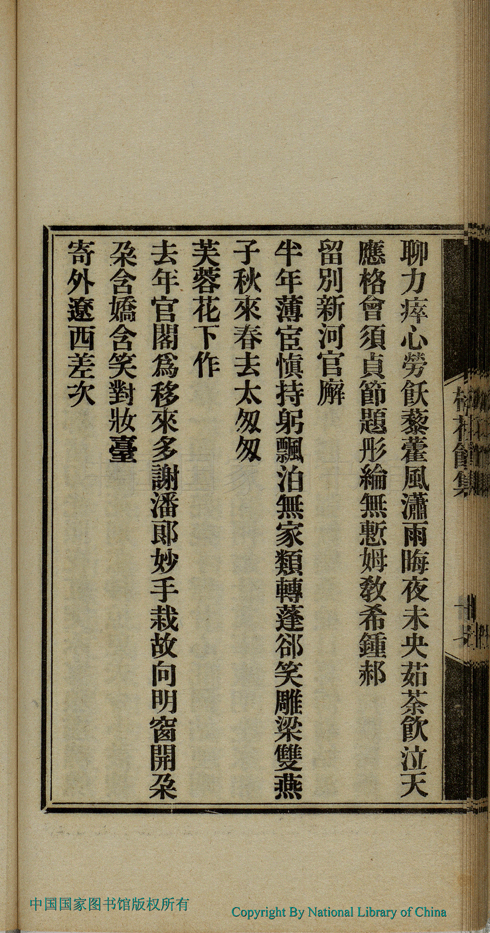 聊力瘁心勞飫藜藿風瀟雨晦夜未央茹荼飲泣天
應格曾須貞節題彤綸無慙姆敎希鍾郝
留別新河官廨
半年薄宦愼持躬飄泊無家類轉蓬郤笑雕梁雙燕
子秋來春去太匆匆
芙蓉花下作
去年官閣爲移來多謝潘郞妙手栽故向明窗開朶
朶含嬌含笑對妝臺
寄外遼西差次
中国国家图书馆版权所有
Copyright By National Library of China